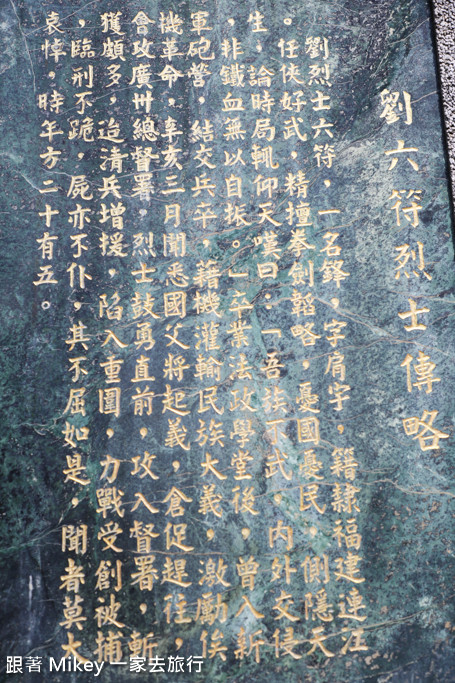 劉六符烈士傳略
劉烈士六符，一名鋒，字肩宇，籍隸福建連江
。任俠好武，精擅拳劍韜略，憂國憂民，側隱天
生，論時局輒仰天嘆曰：「吾族不武，內外交侵
，非鐵血無以自振。」卒業法政學堂後，曾入新
軍砲營，結交兵卒，藉機灌輸民族大義，激勵俟
機革命，辛亥三月聞悉國父將起義，倉促趕往，
會攻廣州總督署，烈士鼓勇直前，攻入督署，斬
獲頗多，迨清兵增援，陷入重圍，力戰受創被捕
，臨刑不跪，屍亦不仆，其不屈如是，聞者莫大
哀悼，時年方二十有五。
跟著 Mikey 一家去旅行